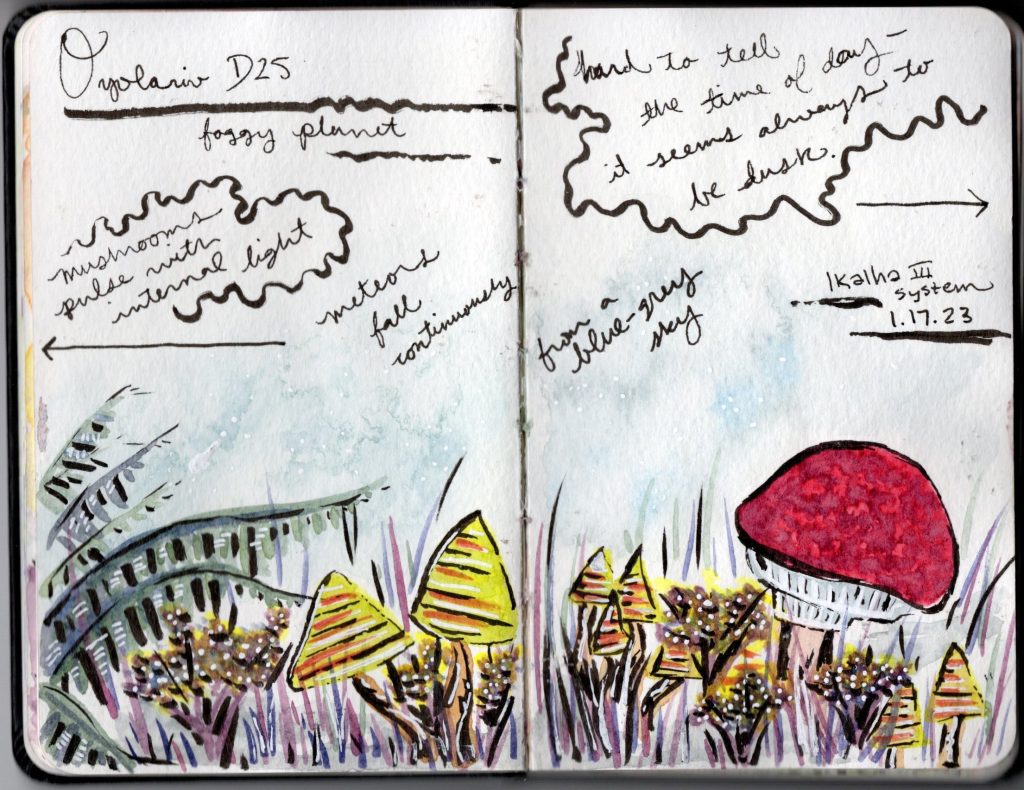 D25
foggy planet
mushrooms
pulse with
internal light
meteors
fall
continuously
hard to tell
the time of day -
it seems always to
be dusk.
from a
blue-grey
sky
Ikalha III
system
1.17.23